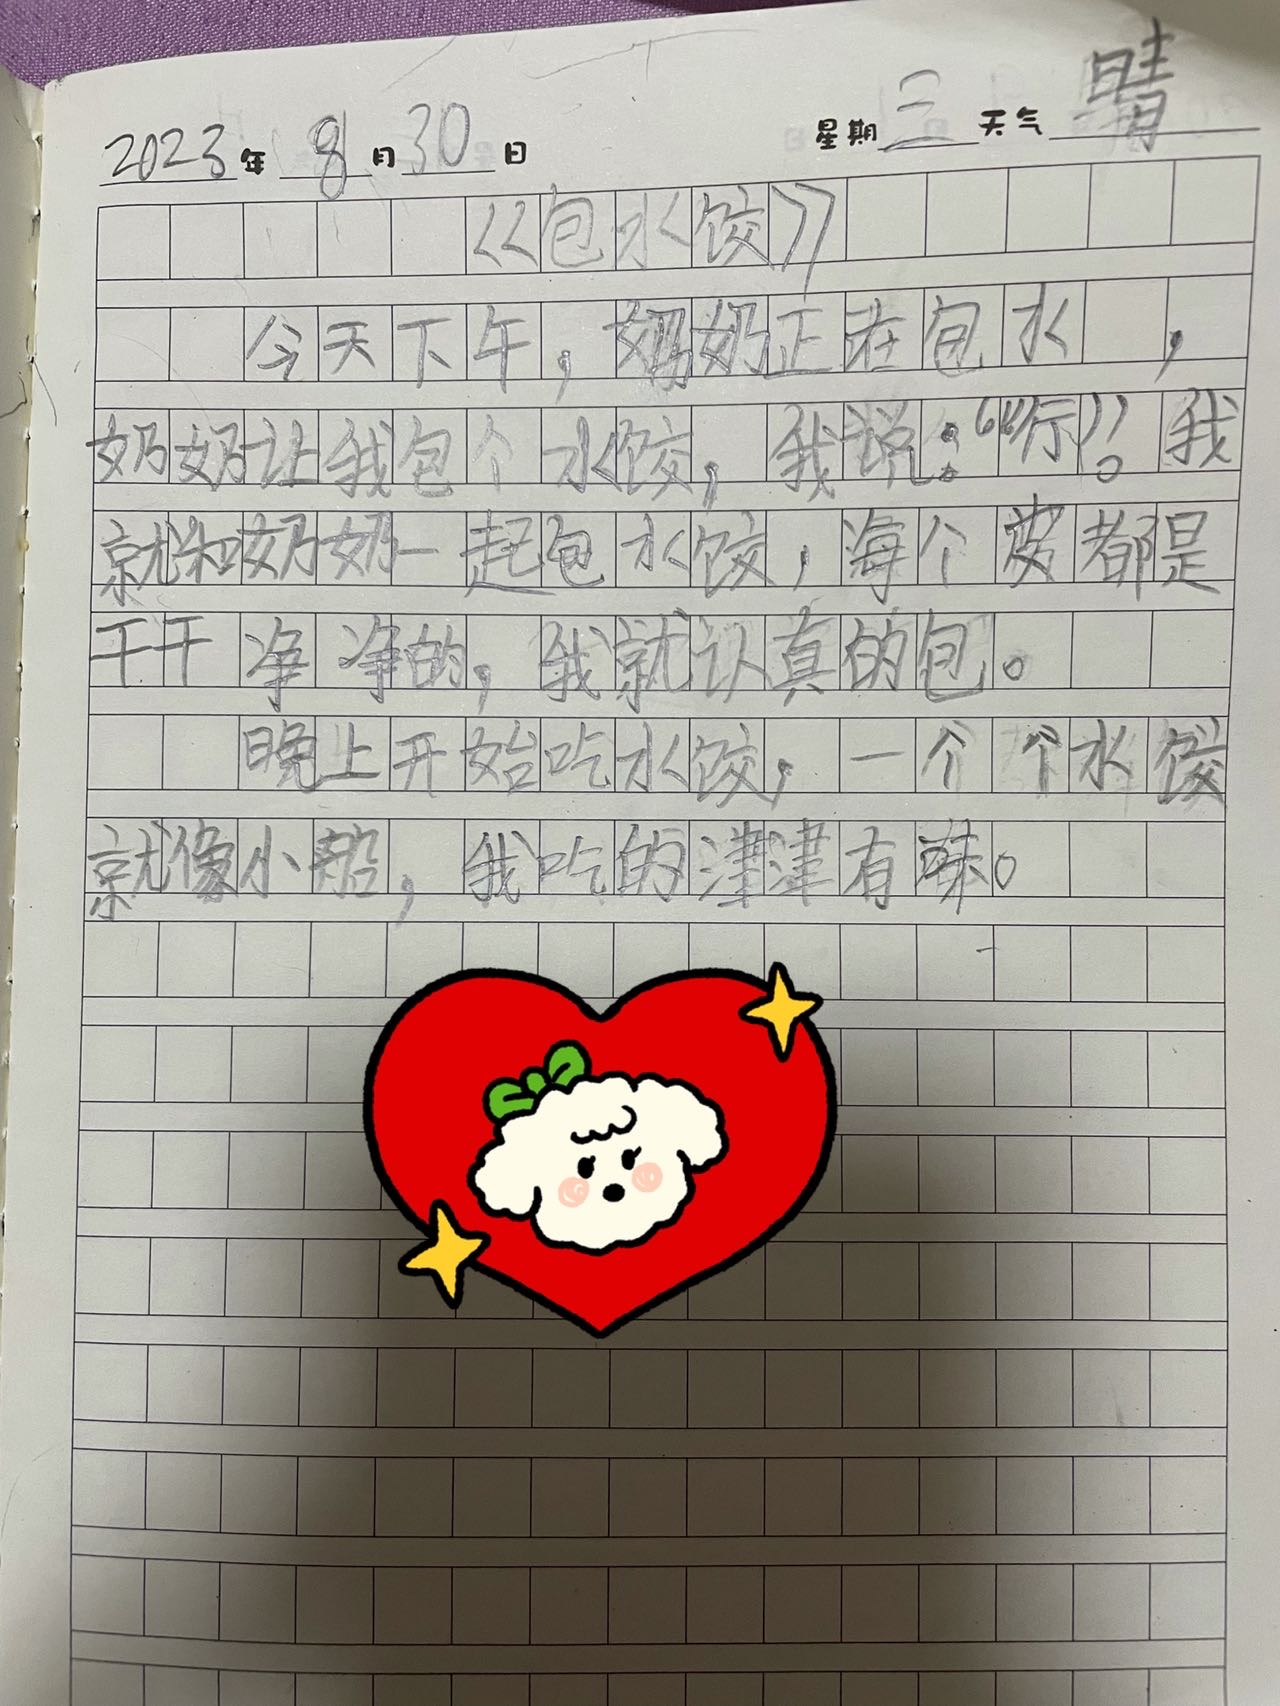 2023年 8月30日 星期三 天气 晴
《包水饺》
今天下午，妈奶正在包水 ，
奶奶让我包个水饺，我说：“行”。我
就和奶奶一起包水饺，每个皮都是
干干净净的，我就认真的包。
晚上开始吃水饺，一个个水饺
就像小船，我吃的津津有味。